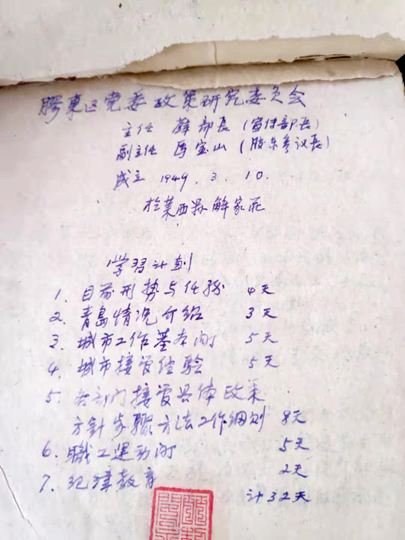 胶东区党委政策研究委员会
主任 薛部長（宣传部長）
副主任 宝山（胶东参议長）
成立 1949．3．10．
於莱西县解家庄
学习计划
1．目前形势与任务 4天
2．青島情况介绍 3天
3．城市工作基本问 5天
4．城市接管经验 5天
5．各部门接管具体政策
方針步驟方法工作细则 8天
6．職工運动问 5天
7．纪律教育 2天
计32天